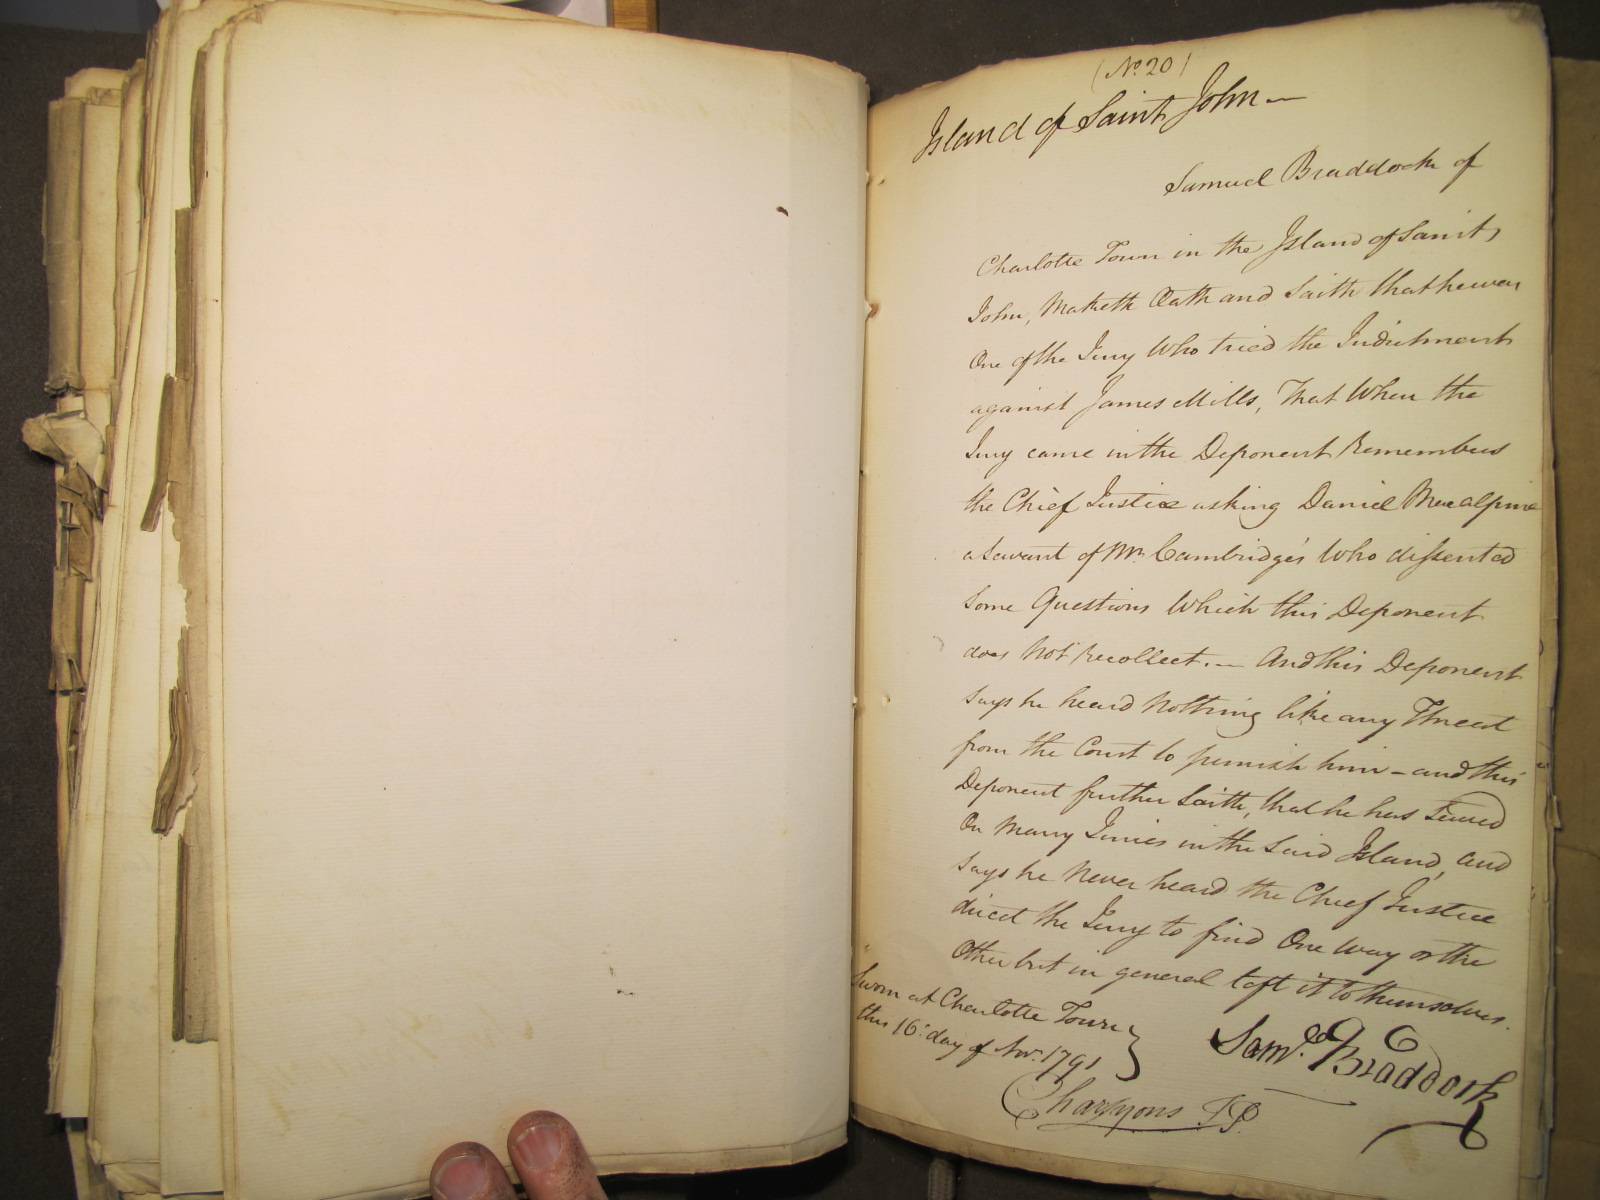 (No. 20)
Island of Saint John —
Samuel Braddock of
Charlotte Town in the Island of Saint
John, Maketh Oath and Saith that he was
One of the Jury Who tried the Indictment
against James Mills, That When the
Jury came in the Deponent Remembers
the Chief Justice asking Daniel Macalpine
a Servant of Mr. Cambridge's Who dissented
Some Questions Which this Deponent
does Not Recollect. — And this Deponent
Says he heard Nothing like any Threat
from the Court to punish him — and this
Deponent further Saith, that he has Served
On Many Juries in the Said Island, and
Says he Never heard the Chief Justice
direct the Jury to find One Way or the
Other but in general left it to themselves.
Sworn at Charlotte Town
this 16: day of Nov. 1791
Saml. Braddock
Cha Lyons JP.